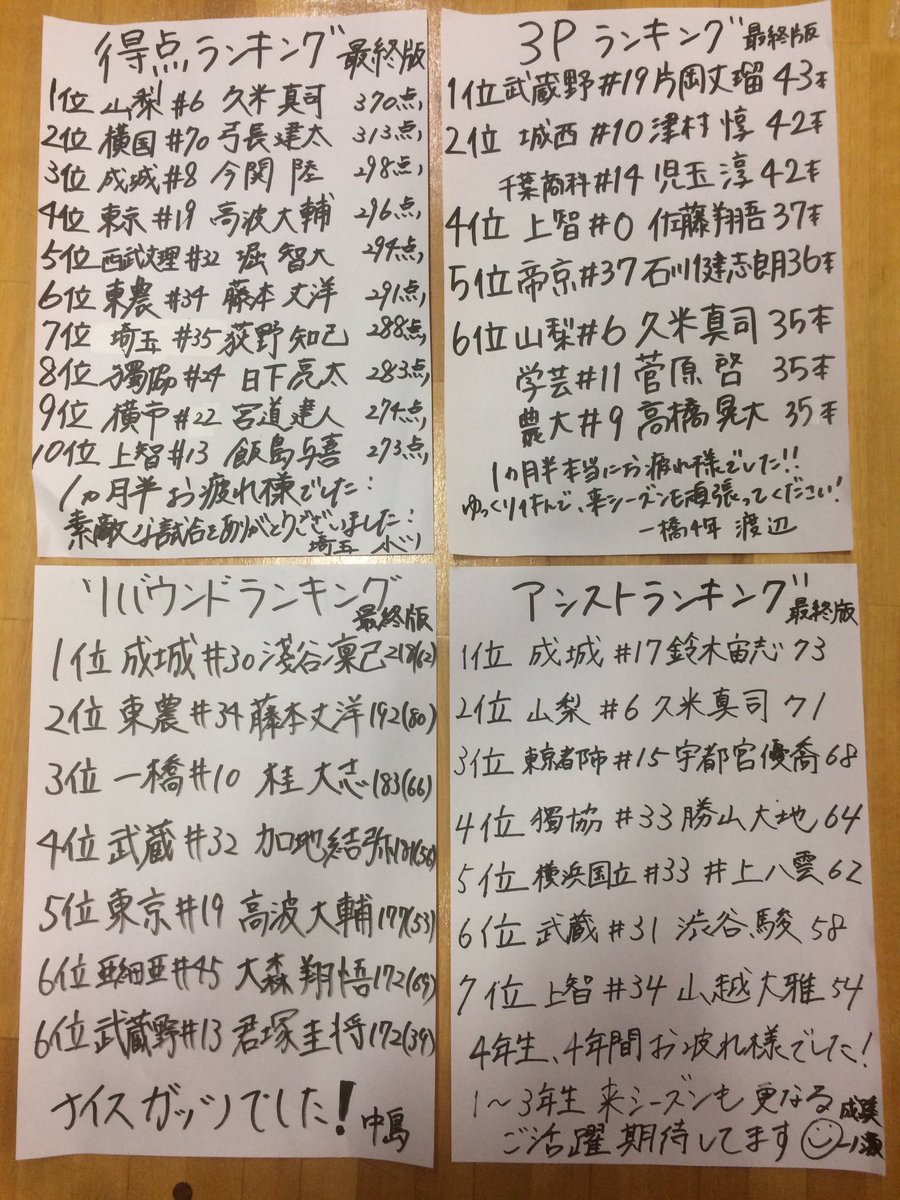 得点ランキング 最終版
1位 山梨 #6 久米真司 370点
2位 横国 #70 弓長建太 313点
3位 成城 #8 今関 陸 298点
4位 東京 #19 高波大輔 296点
5位 西武文理 #32 堀 智大 294点
6位 東農 #34 藤本丈洋 291点
7位 埼玉 #35 荻野知己 288点
8位 獨協 #24 日下亮太 283点
9位 横市 #22 宮道建人 274点
10位 上智 #13 飯島与喜 273点
1ヵ月半お疲れ様でした!
素敵な試合をありがとうございました!
埼玉
3Pランキング 最終版
1位 武蔵野 #19 片岡丈瑠 43本
2位 城西 #10 津村 惇 42本
千葉商科 #14 児玉 淳 42本
4位 上智 #0 佐藤翔吾 37本
5位 帝京 #37 石川健志朗 36本
6位 山梨 #6 久米真司 35本
学芸 #11 菅原 啓 35本
農大 #9 高橋晃大 35本
1ヵ月半本当にお疲れ様でした!!
ゆっくり休んで、来シーズンも頑張ってください!
一橋4年 渡辺
リバウンドランキング 最終版
1位 成城 #30 淺谷凛己 218(62)
2位 東農 #34 藤本丈洋 192(80)
3位 一橋 #10 桂 大志 183(66)
4位 武蔵 #32 加地結弥 181(56)
5位 東京 #19 高波大輔 177(53)
6位 亜細亜 #45 大森翔悟 172(69)
6位 武蔵野 #13 君塚圭将 172(39)
ナイスガッツでした! 中島
アシストランキング 最終版
1位 成城 #17 鈴木宙志 73
2位 山梨 #6 久米真司 71
3位 東京都市 #15 宇都宮優喬 68
4位 獨協 #33 勝山大地 64
5位 横浜国立 #33 井上八雲 62
6位 武蔵 #31 渋谷駿 58
7位 上智 #34 山越大雅 54
4年生、4年間お疲れ様でした!
1〜3年生 来シーズンも更なる
ご活躍期待してます
成蹊